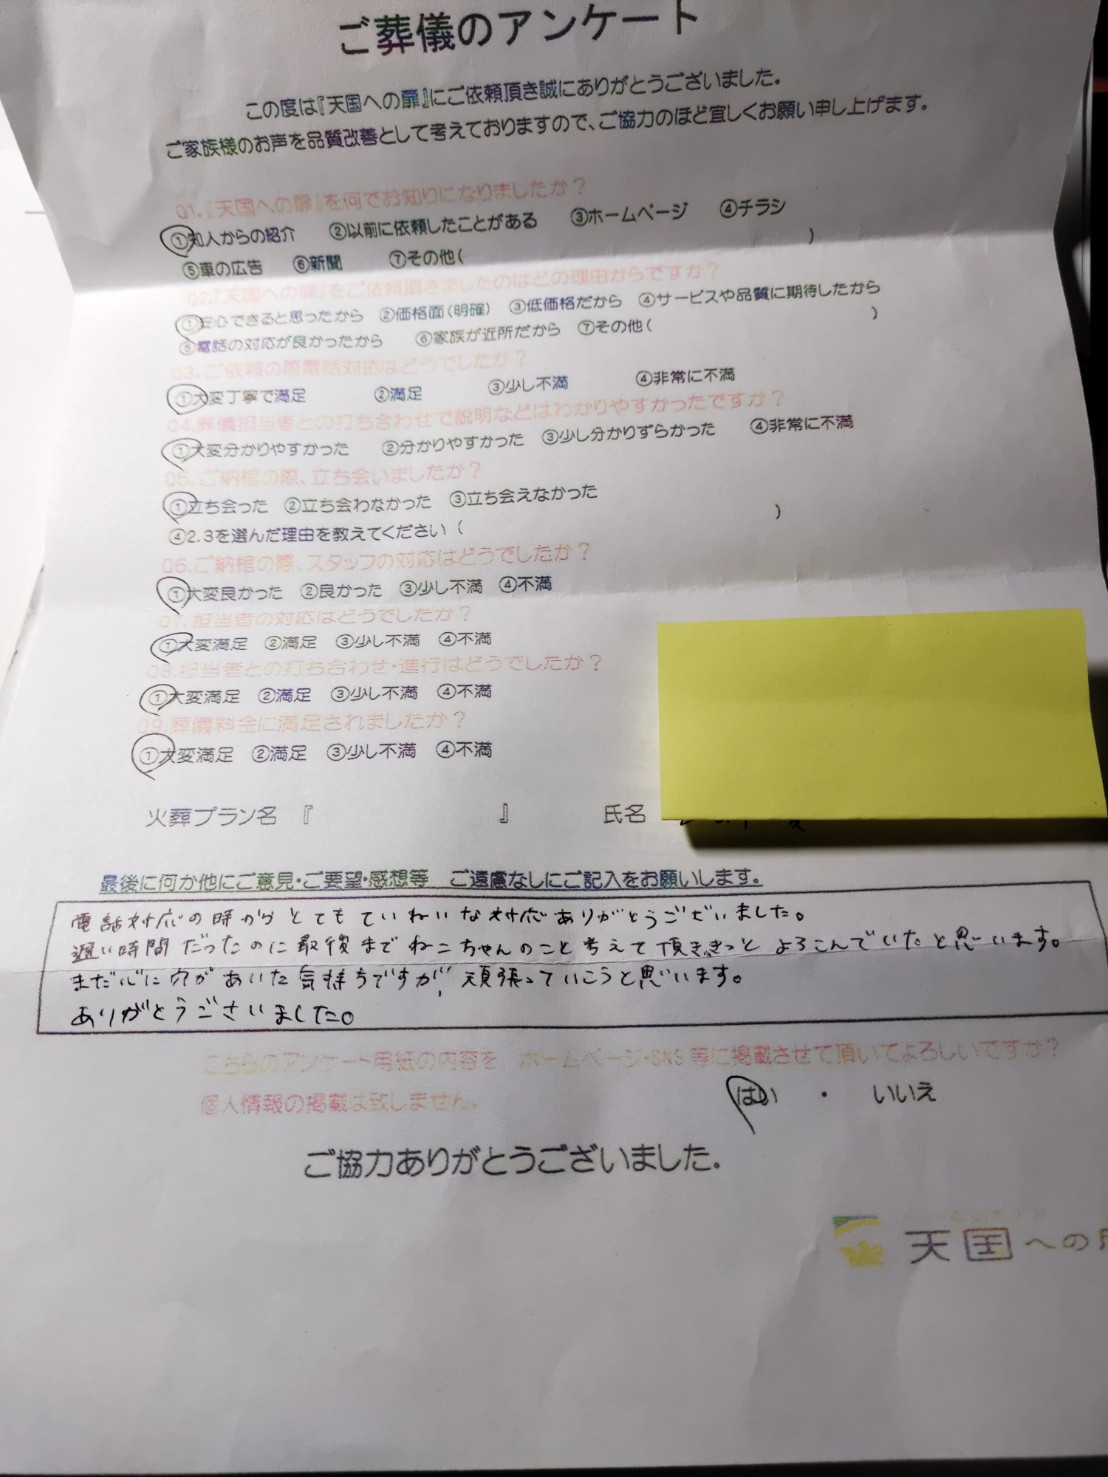 ご葬儀のアンケート
この度は『天国への扉』にご依頼頂き誠にありがとうございました。
ご家族様のお声を品質改善として考えておりますので、ご協力のほど宜しくお願い申し上げます。
Q1.『天国への扉』を何でお知りになりましたか?
①知人からの紹介 ②以前に依頼したことがある ③ホームページ ④チラシ
⑤車の広告 ⑥新聞 ⑦その他( )
Q2.『天国への扉』をご依頼頂きましたのはどの理由からですか?
①安心できると思ったから ②価格面(明確) ③低価格だから ④サービスや品質に期待したから
⑤電話の対応が良かったから ⑥家族が近所だから ⑦その他( )
Q3.ご依頼の際電話対応はどうでしたか?
①大変丁寧で満足 ②満足 ③少し不満 ④非常に不満
Q4.葬儀担当者との打ち合わせで説明などはわかりやすかったですか?
①大変分かりやすかった ②分かりやすかった ③少し分かりずらかった ④非常に不満
Q5.ご納棺の際、立ち会いましたか?
①立ち会った ②立ち会わなかった ③立ち会えなかった
④2.3を選んだ理由を教えてください( )
Q6.ご納棺の際、スタッフの対応はどうでしたか?
①大変良かった ②良かった ③少し不満 ④不満
Q7.担当者の対応はどうでしたか?
①大変満足 ②満足 ③少し不満 ④不満
Q8.担当者との打ち合わせ・進行はどうでしたか?
①大変満足 ②満足 ③少し不満 ④不満
Q9.葬儀料金に満足されましたか?
①大変満足 ②満足 ③少し不満 ④不満
火葬プラン名 『 』 氏名
最後に何か他にご意見・ご要望・感想等 ご遠慮なしにご記入をお願いします。
電話対応の時からとてもていねいな対応ありがとうございました。
遅い時間だったのに最後までねこちゃんのこと考えて頂き、きっとよろこんでいたと思います。
まだ心に穴があいた気持ちですが、頑張っていこうと思います。
ありがとうございました。
こちらのアンケート用紙の内容を、ホームページ・SNS等に掲載させて頂いてよろしいですか?
個人情報の掲載は致しません。 はい ・ いいえ
ご協力ありがとうございました。
天国への